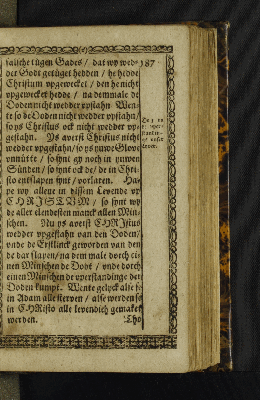 falsche tügen Gades / dat wy wed-
der Godt getüget hedden / he hedde
Christum upgewecket / den he nicht
upgewecket hedde / na demmale de
Doden nicht wedder upstahn Wen-
te so de Doden nicht wedder upstahn /
so ys Christus ock nicht wedder up-
gestahn. Ys averst Christus nicht
wedder upgestahn / so ys yuwe Glove
unnütte / so synt gy noch in yuwen
Sünden / so synt ock de / de in Chri-
sto entslapen synt / vorlaren. Ha-
pe wy allene in dissem Levende up
CHRISTUM / so synt wy
de aller elendesten manck allen Min-
schen. Nu ys averst CHRistus
wedder upgestahn van den Doden /
unde de Erstlinck geworden van den
de dar slapen / na dem male dorch ei-
nen Minschen de Dodt / unde dorch
einen Minschen de uperstandinge der
Doden kumpt. Wente gelyck alse se
in Adam alle sterven / alse werden se
in CHRisto alle levendich gemaket
werden.
Cho
187